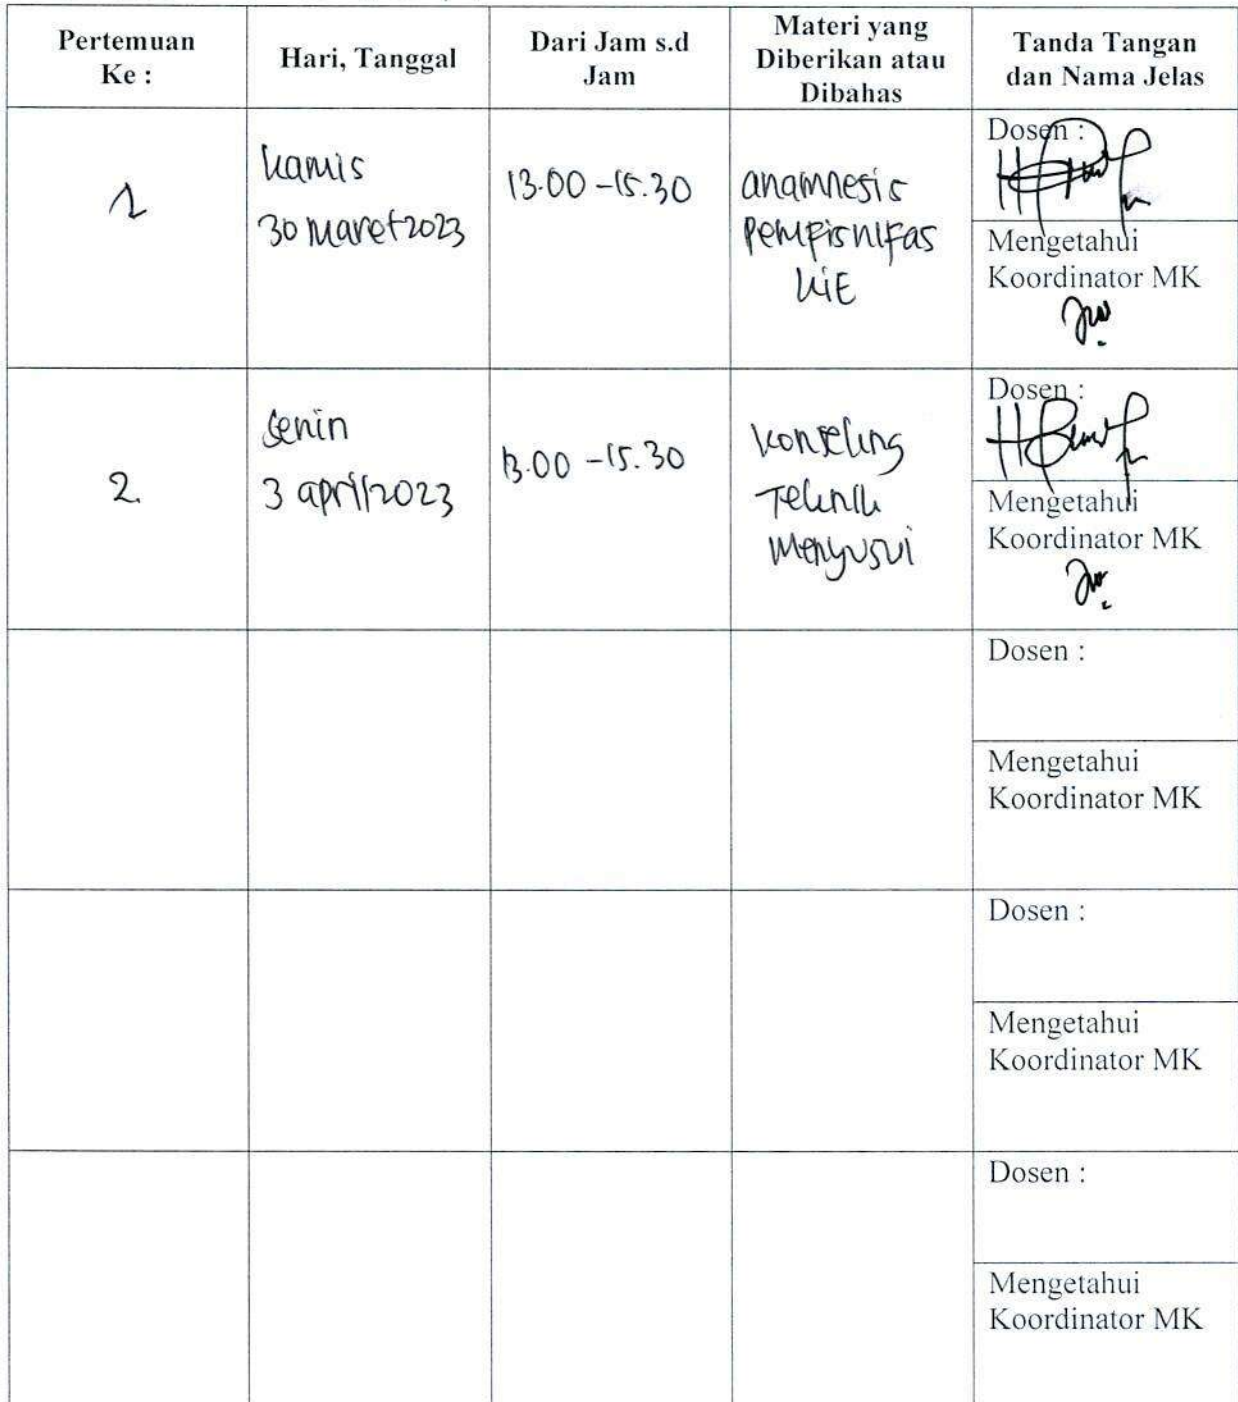 Pertemuan
Ke :
Hari, Tanggal
Dari Jam s.d
Jam
Materi yang
Diberikan atau
Dibahas
Tanda Tangan
dan Nama Jelas
1
kamis
30 maret 2023
13.00 - 15.30
anamnesis
pemfisnifas
KIE
Dosen :
Mengetahui
Koordinator MK
2.
senin
3 april 2023
13.00 - 15.30
konseling
Teknik
menyusui
Dosen :
Mengetahui
Koordinator MK
Dosen :
Mengetahui
Koordinator MK
Dosen :
Mengetahui
Koordinator MK
Dosen :
Mengetahui
Koordinator MK